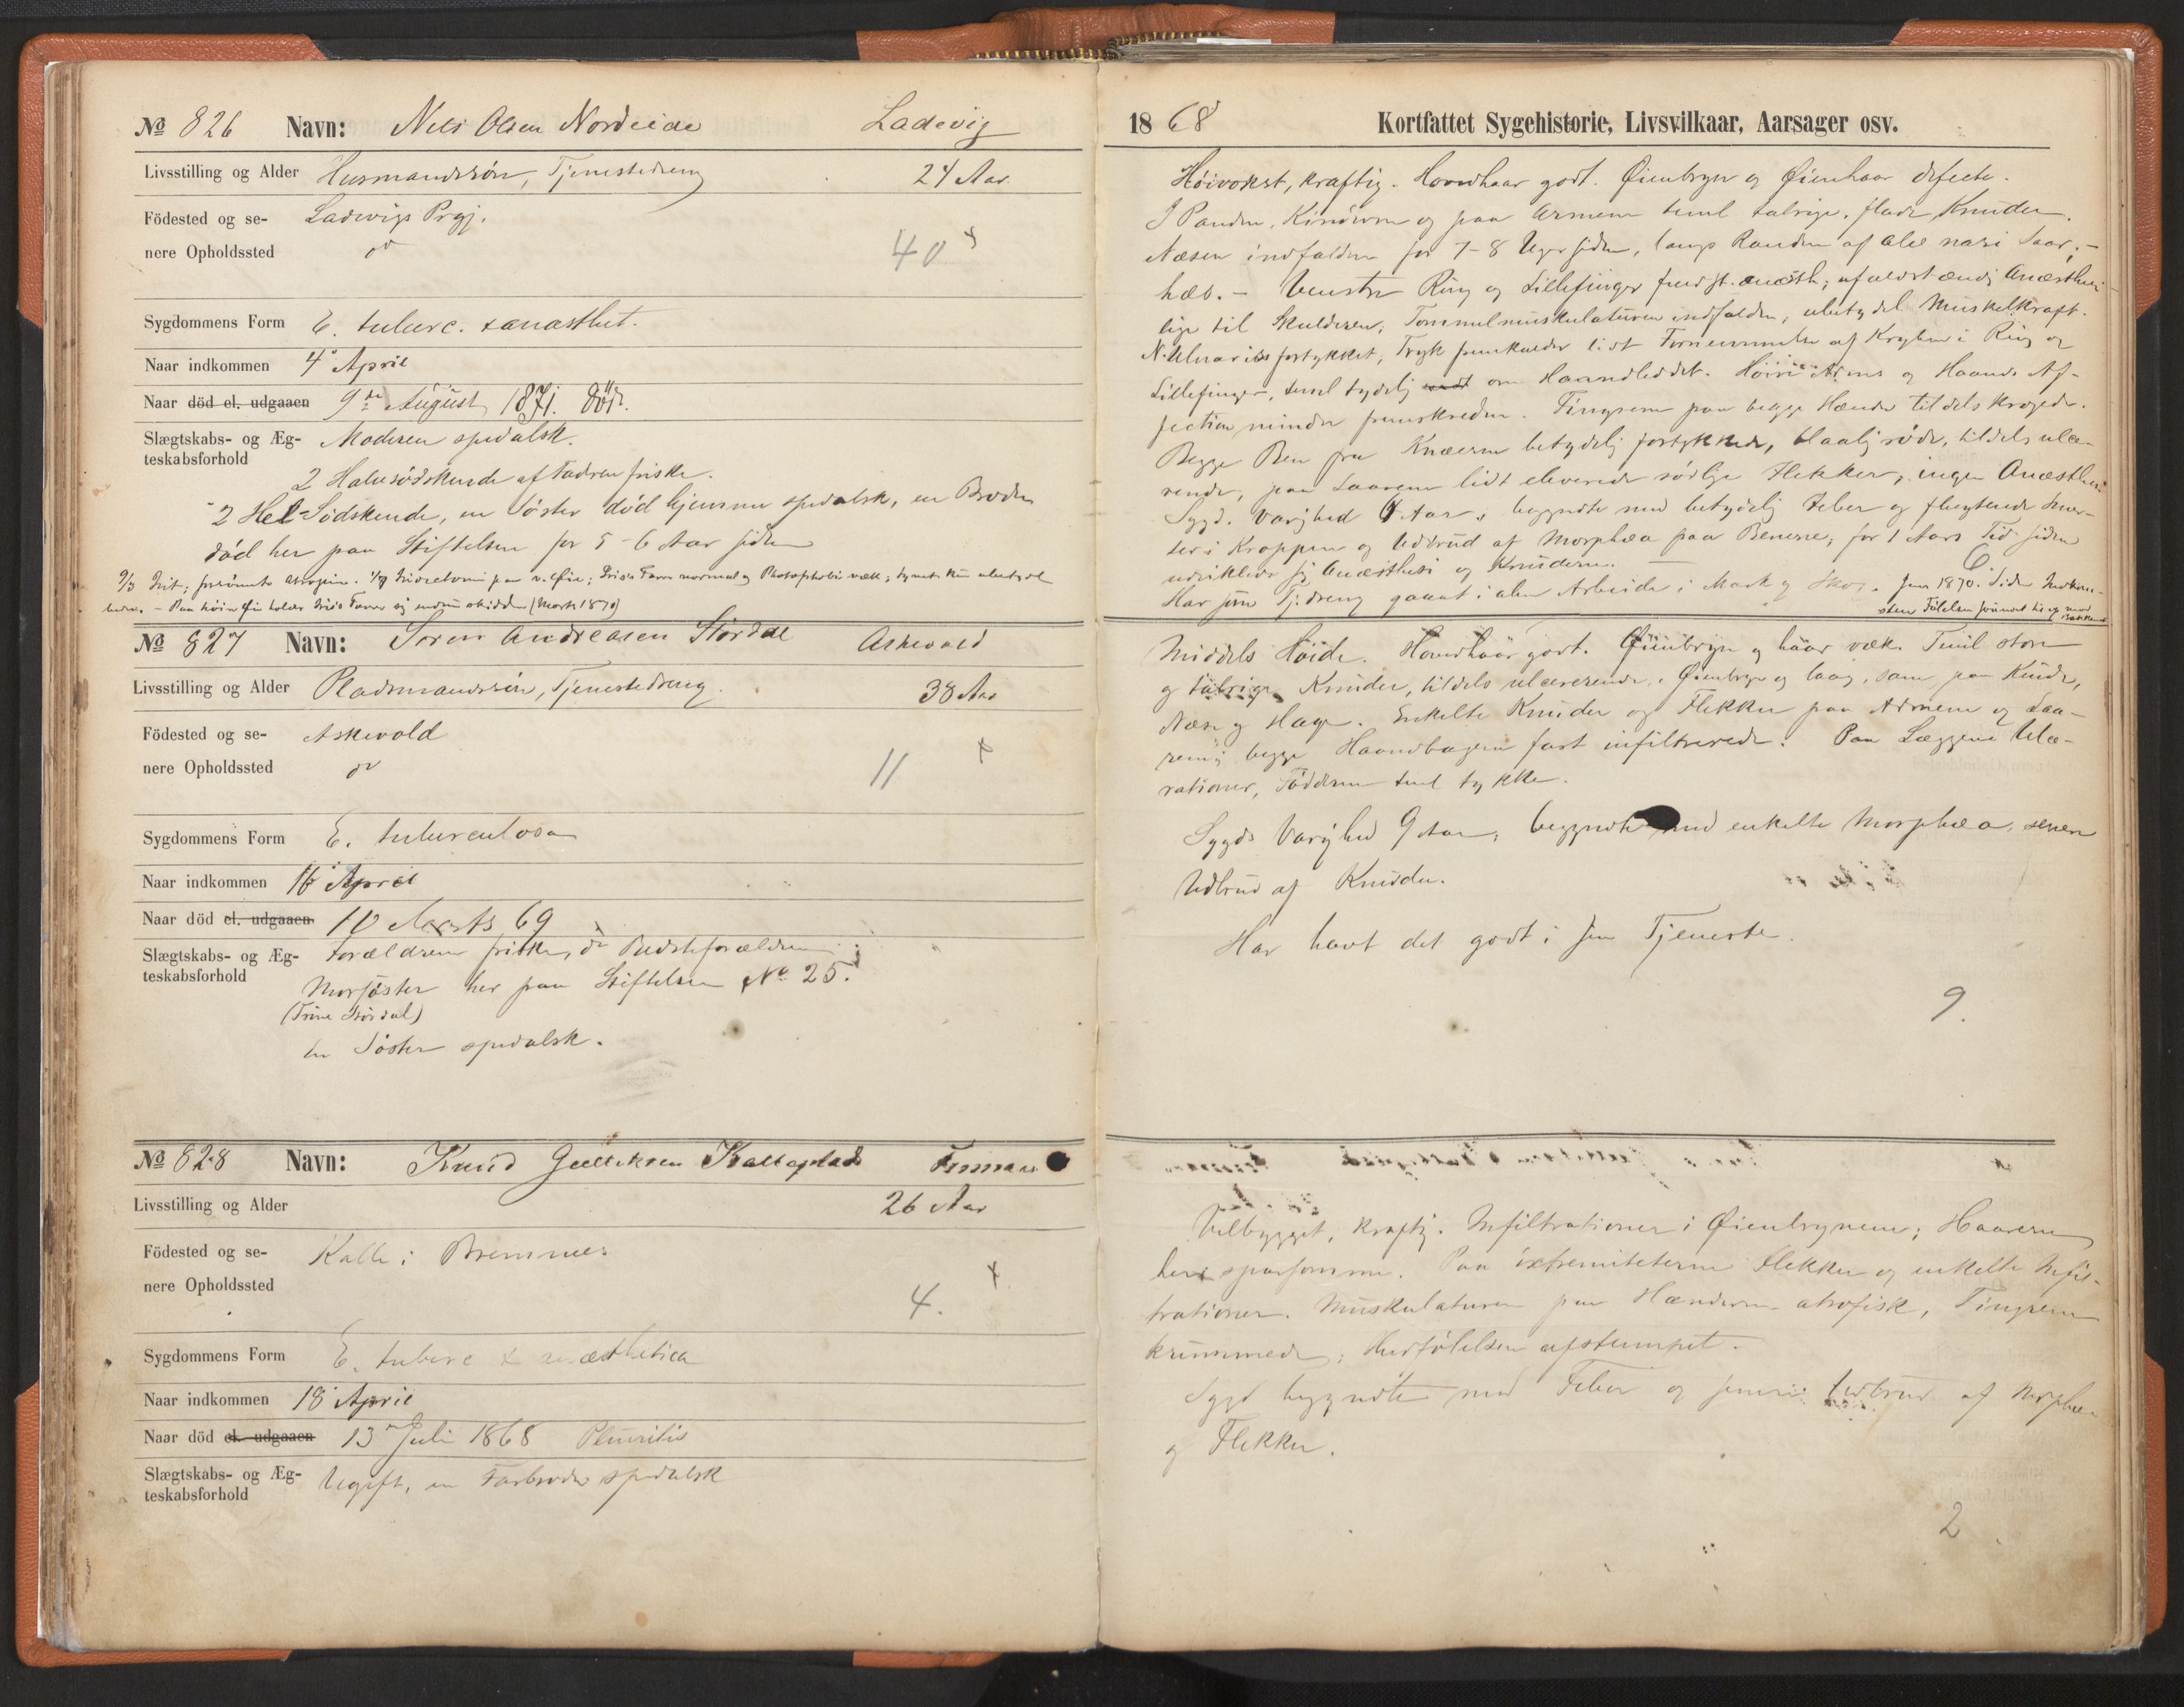 № 826 Navn: Nils Olsen Nordeide Ladevig
Livsstilling og Alder Husmandssön, Tjenestedreng 24 Aar
Födested og se- Ladevigs Prgj.
nere Opholdssted do 40 +
Sygdommens Form E. tuberc. & anæsthet.
Naar indkommen 4 April
Naar död el. udgaaen 9de August 1871. död.
Slægtskabs- og Æg-
teskabsforhold
Moderen spedalsk.
2 Halvsødskende af Fadren friske.
2 Hel-Sødskende, en Søster död hjemme spedalsk, en Broder
död her paa Stiftelsen for 5-6 Aar siden
9/3 Irit;
(Marts 1870)
№ 827 Navn: Sören Andreasen Stördal Askevold
Livsstilling og Alder Pladsmandssön, Tjenestedreng. 38 Aar
Födested og se- Askevold
nere Opholdssted do 11 +
Sygdommens Form E. tuberculosa
Naar indkommen 16 April
Naar död el. udgaaen 10 Marts 69
Slægtskabs- og Æg-
teskabsforhold
Forældrene friske, do Bedsteforældrene
Morsøster her paa Stiftelsen No 25.
(Trine Stördal)
en Söster spedalsk.
№ 828 Navn: Knud Kalleplads
Livsstilling og Alder 26 Aar
Födested og se- Kalle i Bremnes
nere Opholdssted 4. +
Sygdommens Form E. tuberc & anæsthetica
Naar indkommen 18 April
Naar död el. udgaaen 13 Juli 1868 Pleuritis
Slægtskabs- og Æg-
teskabsforhold
Ugift, en Farbroder spedalsk
1868 Kortfattet Sygehistorie, Livsvilkaar, Aarsager osv.
Höivoxst, kraftig. Hovedhaar godt. Øienbryn og Øienhaar defecte.
I Panden, Kinderne og paa Armene teml talrige, flade Knuder.
Næsen indfalden for 7-8 Uger siden, langs Randen af alæ nasi Saar.-
hæs. - Venstre Ring og Lillefinger anæsth; ufuldstændig Anæsthesi
lige til Skulderen; Tommelmuskulaturen indfalden, ubetydel Muskelkraft.
N. Ulnaris fortykket, Tryk fremkalder lidt Fornemmelse af Kryben i Ring og
Lillefinger, temmel tydelig om Haandleddet. Höire Arms og Haands Af-
fection mindre fremskreden. Fingrene paa begge Hænder tildels krogede.
Begge Ben fra Knæerne betydelig fortykkede, blaalig röde, tildels ulce-
rende, paa Laarene lidt eleverede rödlige Flekker, ingen Anæsthesi
Sygd. Varighed Aar; begyndte med betydelig Feber og flygtende Smer-
ter i Kroppen og Udbrud af Morphæa paa Benene; for 1 Aars Tid siden
udviklede sig Anæsthesi og Knuderne. 6
Har som Tj.dreng gaaet i alm Arbeide i Mark og Skog. Jan 1870.
Middels Höide. Hovedhaar godt. Øienbryn og haar væk. Temel store
og talrige Knuder, tildels ulcererende, i Øienbryn og laag, som paa Kinder,
Næse og Hage. Enkelte Knuder og Flekker paa Armene og Laa-
rene; begge Haandbagene fast infiltrerede. Paa Læggene Ulce-
rationer, Föddrene temel tykke.
Sygds Varighed 9 Aar; begyndte med enkelte Morphæa, senere
Udbrud af Knuder.
Har havt det godt i sin Tjeneste.
9.
Velbygget, kraftig. Infiltrationer i Øienbrynene; Haarene
her sparsomme. Paa Extremiteterne Flekker og enkelte Infil-
trationer. Muskulaturen paa Hænderne atrofisk, Fingrene
krummede; Hudfölelsen afstumpet.
Sygd begyndte med Feber og senere Udbrud af Morphæa
og Flekker.
2